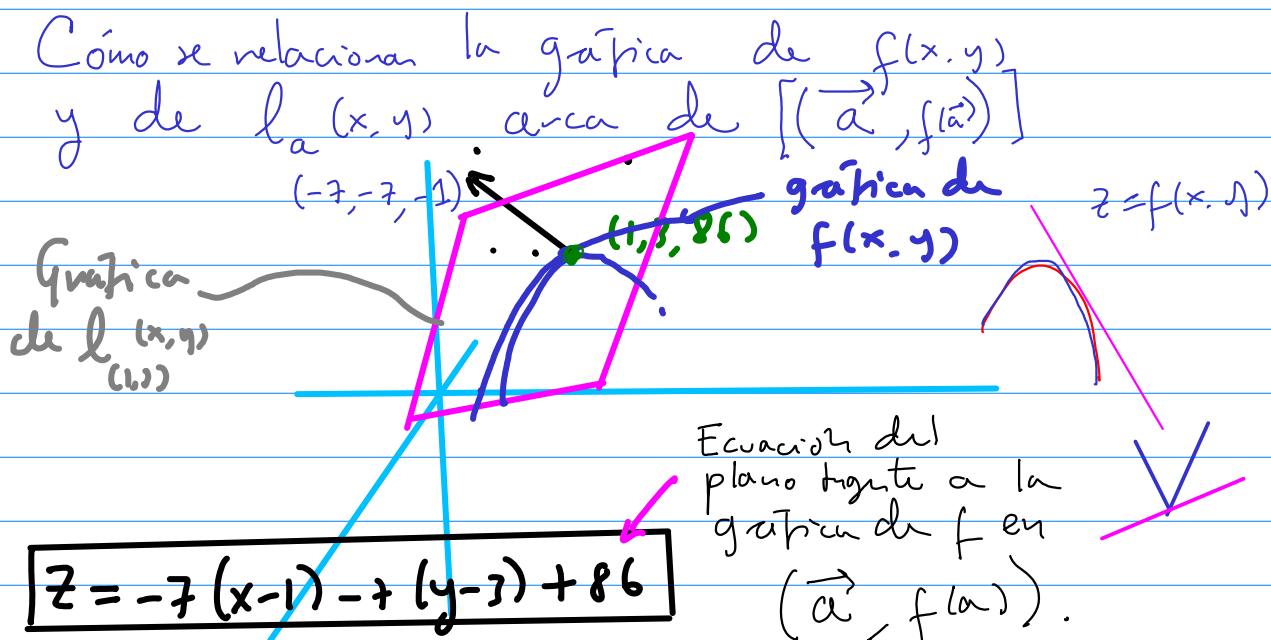 Cómo se relacionan la gráfica de f(x,y)
y de l_a (x,y) acerca de [(a⃗, f(a⃗))]
(-7,-7,-1)
gráfica de
f(x,y)
z = f(x,y)
(1,3,86)
Gráfica
de l_(1,3) (x,y)
Ecuación del
plano tngnte a la
gráfica de f en
(a⃗, f(a)).
z = -7(x-1) -7(y-3) + 86